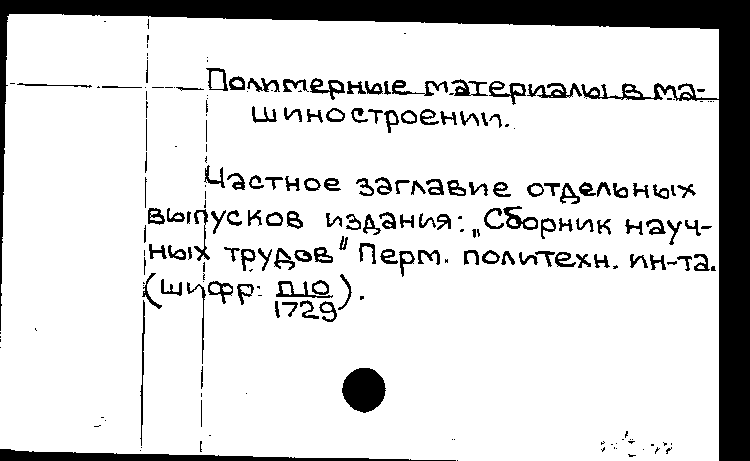 Полимерные материалы в ма-
шиностроении.
Частное заглавие отдельных
выпусков издания: „Сборник науч-
ных трудов" Перм. политехн. ин-та.
(шифр: П10/1729).